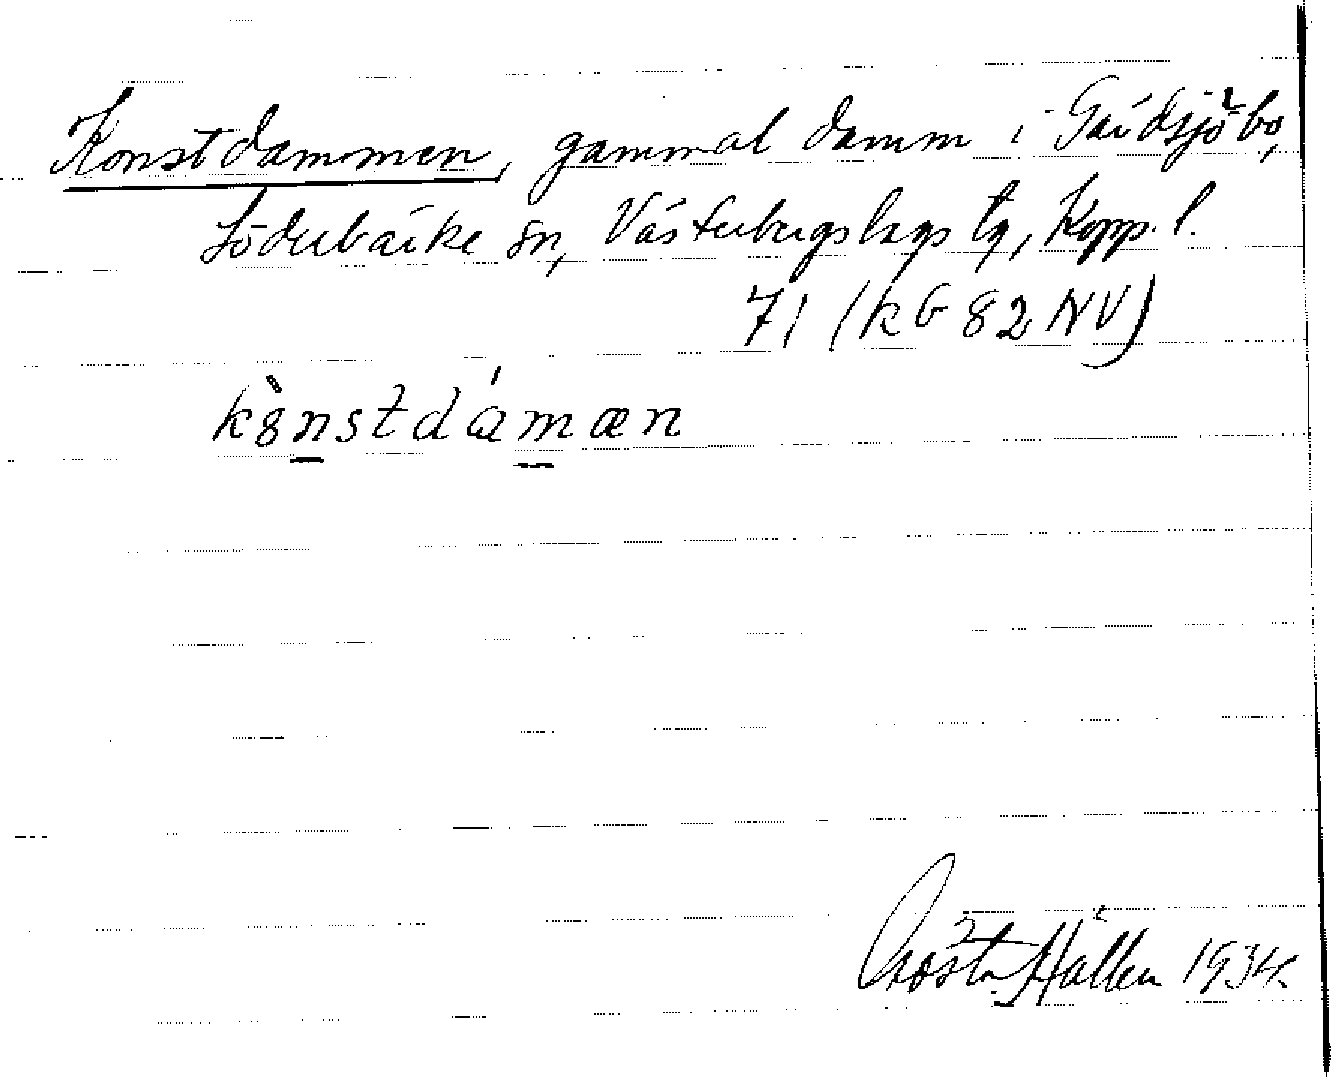 Konstdammen, gammal damm i Gäddsjöbo,
Söderbärke sn, Västerbergslags tg, Kopp. l.
71 (kG 82 NV)
kònstdámæn
Hällen 1934